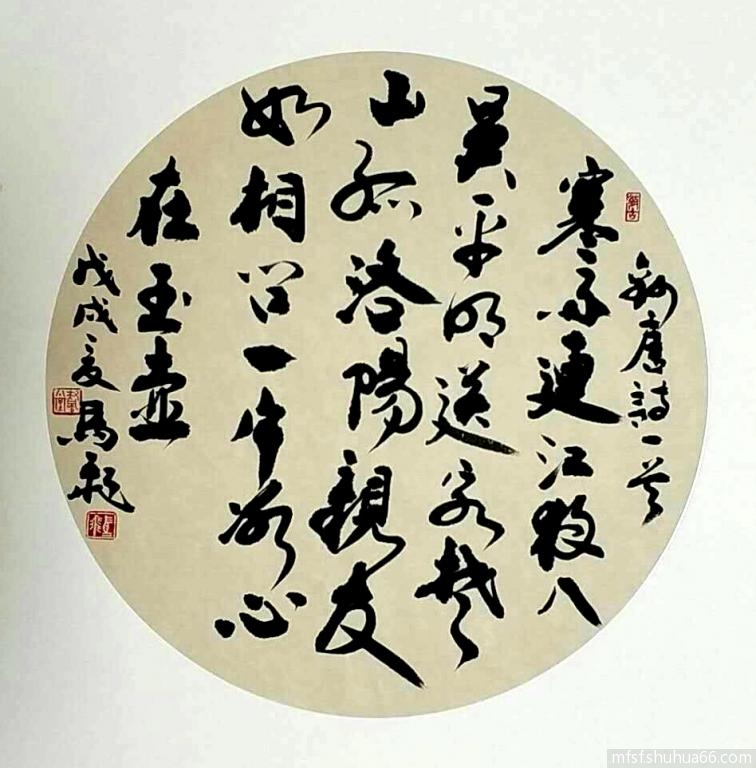 録唐詩一首
寒雨連江夜入
吳平明送客楚
山孤洛陽親友
如相問一片冰心
在玉壺
戊戌夏馬飛
mfsfshuhua66.com